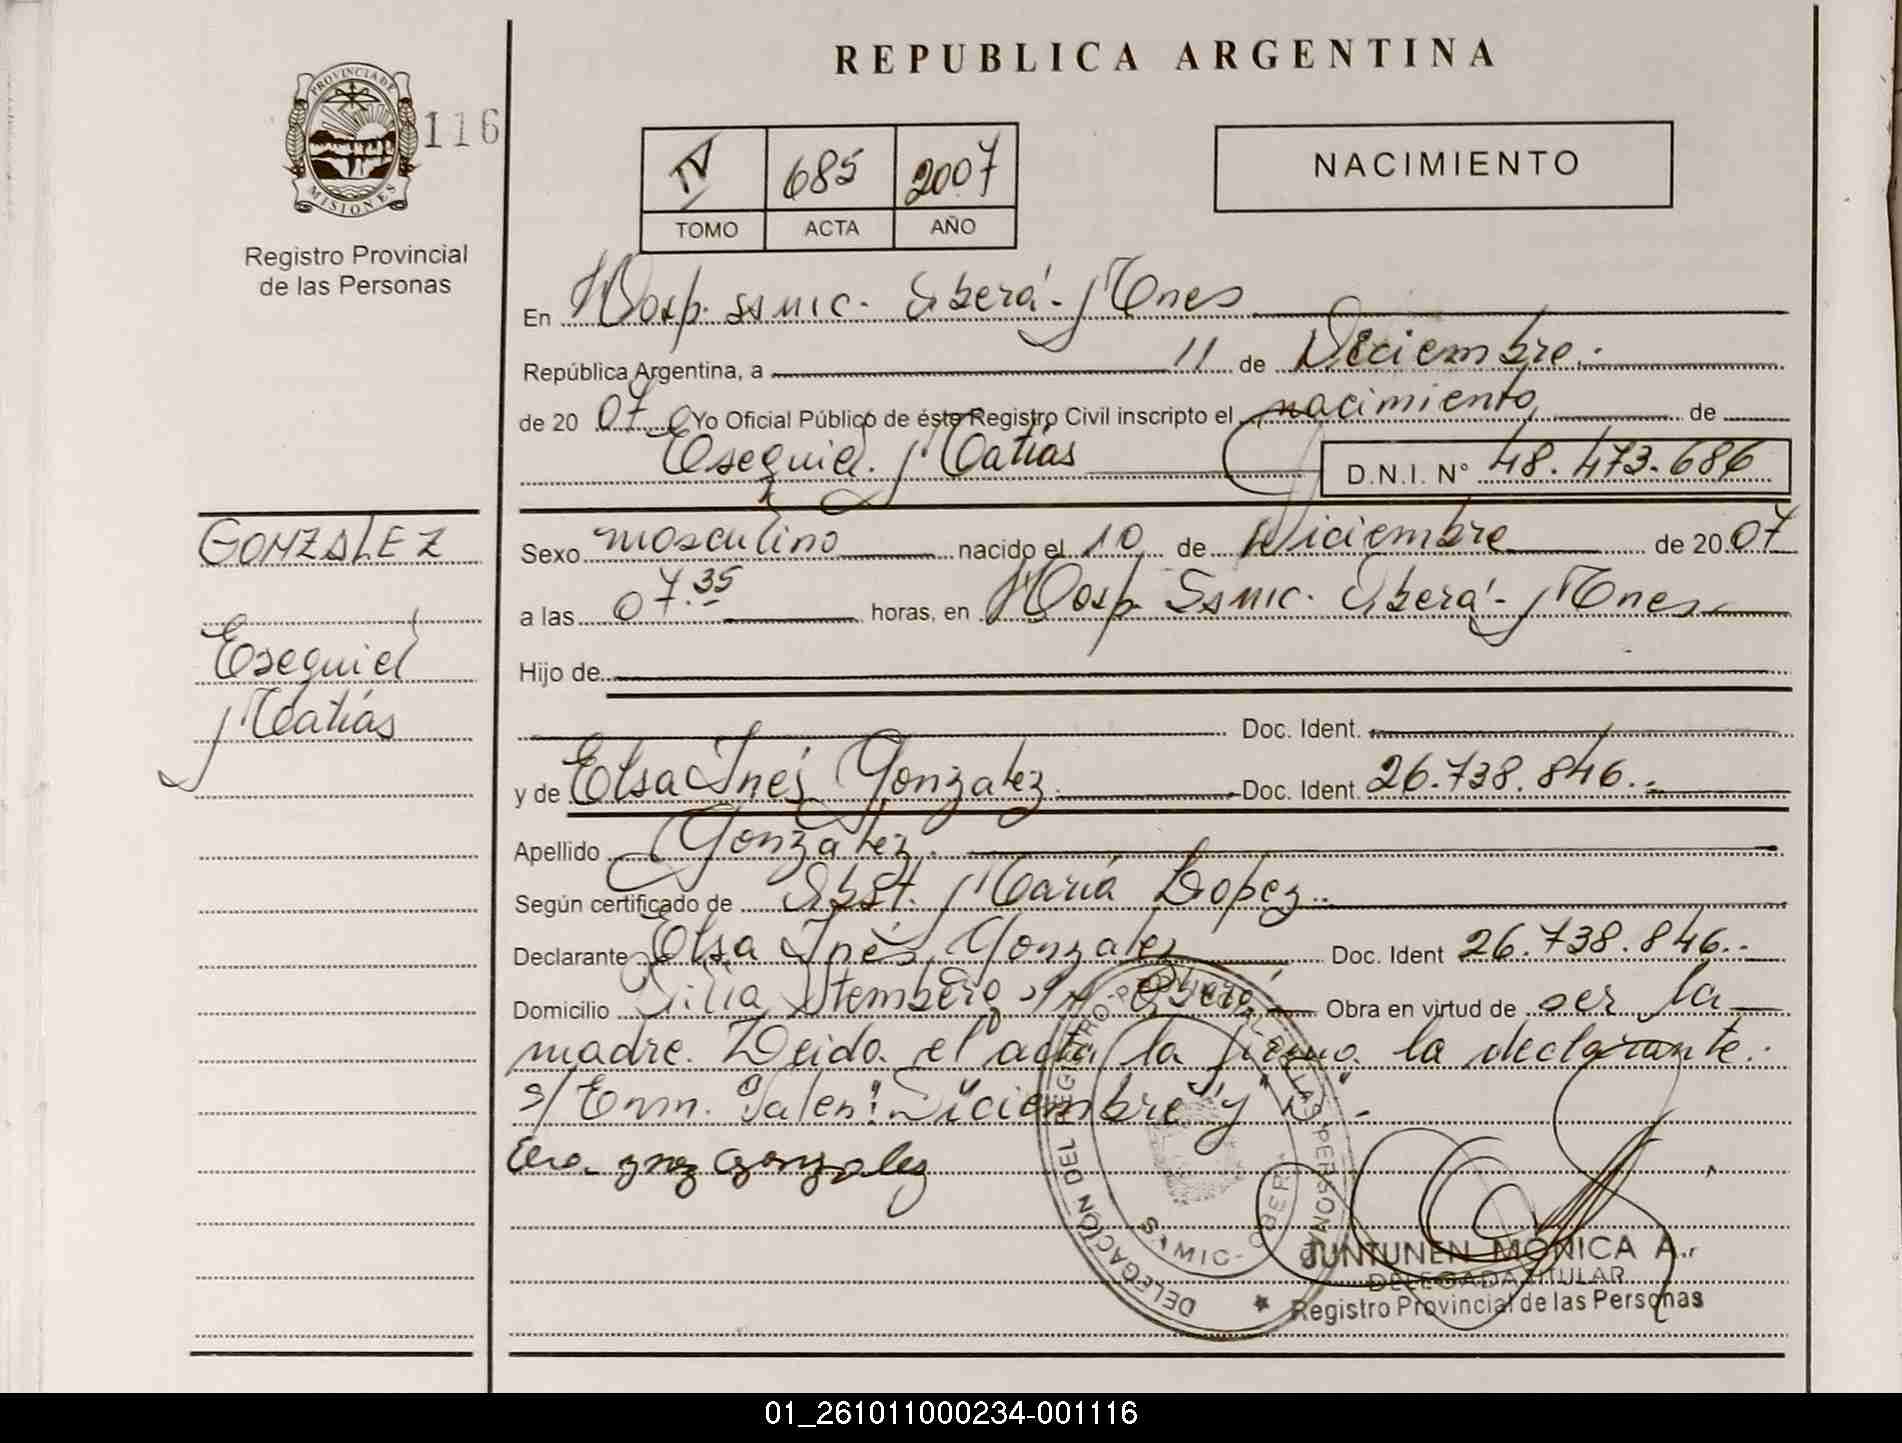 REPUBLICA ARGENTINA
PROVINCIA DE
MISIONES
116
Registro Provincial
de las Personas
IV 685 2007
TOMO ACTA AÑO
NACIMIENTO
En Hosp. SSMIC. Oberá - Mnes
República Argentina, a 11 de Diciembre.-
de 20 07 Yo Oficial Público de éste Registro Civil inscripto el nacimiento de
Esequiel Matías D.N.I. N° 48.473.686
GONZALEZ
Esequiel
Matías
Sexo masculino nacido el 10 de Diciembre de 20 07
a las 07.35 horas, en Hosp. SSMIC. Oberá - Mnes
Hijo de
Doc. Ident.
y de Elsa Inés Gonzalez Doc. Ident. 26.738.846.-
Apellido Gonzalez.
Según certificado de Obst. María Lopez.
Declarante Elsa Inés Gonzalez Doc. Ident 26.738.846.-
Domicilio Villa Stemberg s/n Oberá Obra en virtud de ser la
madre. Leido el acta la firma la declarante.-
s/ Enm. Valen: "Diciembre" y
gonzalez
DELEGACIÓN DEL REGISTRO PROVINCIAL DE LAS PERSONAS
JUNTUNEN MONICA A.
DELEGADA TITULAR
Registro Provincial de las Personas
01_261011000234-001116